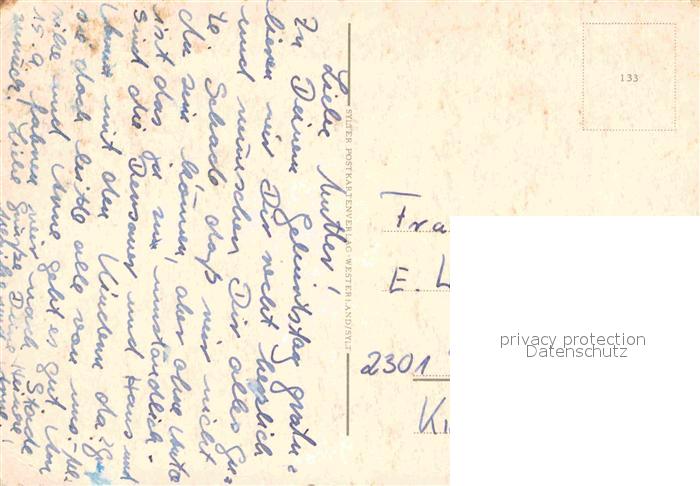 Liebe Mutter!
Zu Deinem Geburtstag gratu=
lieren wir Dir recht herzlich
und wünschen Dir alles Gu=
te. Schade daß wir nicht
da sein können, aber ohne Auto
ist das ja zu umständlich.
Sind die Densauer und Hans und
mit den Kindern da?
se doch bitte alle von uns.
und Anne geht es gut. Am
15.9. fahren wir nach Stade
zurück. Liebe Grüße Deine
SYLTER POSTKARTENVERLAG WESTERLAND/SYLT
133
Fra
E. L
2301
K
privacy protection
Datenschutz